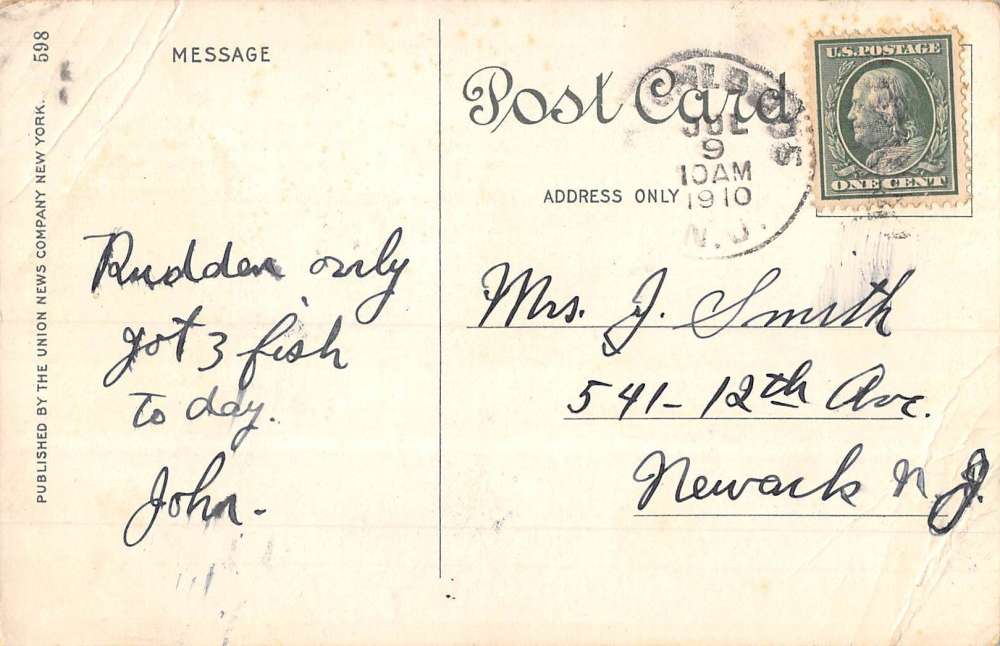 598
PUBLISHED BY THE UNION NEWS COMPANY NEW YORK.
MESSAGE
Post Card
ADDRESS ONLY
U.S. POSTAGE
ONE CENT
JUL
9
10AM
1910
N. J.
Rudden only
got 3 fish
to day.
John.
Mrs. J. Smith
541- 12th Ave.
Newark N.J.